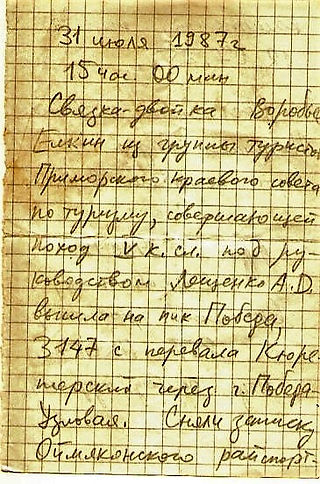 31 июля 1987г
15 час 00 мин
Связка-двойка Воробье
Елкин из группы туристо
Приморского краевого совета
по туризму, совершающей
поход V к.сл. под ру-
ководством Лещенко А.D.
вышла на пик Победа,
3147 с перевала Кюре-
терский через г. Победа
Узловая. Сняли записку
Оймяконского райспорт-